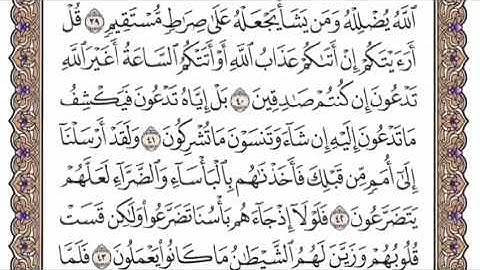 اللَّهُ يُضْلِلْهُ وَمَن يَشَأْ يَجْعَلْهُ عَلَىٰ صِرَاطٍ مُّسْتَقِيمٍ ٣٩ قُلْ
أَرَءَيْتَكُمْ إِنْ أَتَىٰكُمْ عَذَابُ اللَّهِ أَوْ أَتَتْكُمُ السَّاعَةُ أَغَيْرَ اللَّهِ
تَدْعُونَ إِن كُنتُمْ صَٰدِقِينَ ٤٠ بَلْ إِيَّاهُ تَدْعُونَ فَيَكْشِفُ
مَا تَدْعُونَ إِلَيْهِ إِن شَاءَ وَتَنسَوْنَ مَا تُشْرِكُونَ ٤١ وَلَقَدْ أَرْسَلْنَا
إِلَىٰ أُمَمٍ مِّن قَبْلِكَ فَأَخَذْنَٰهُم بِالْبَأْسَاءِ وَالضَّرَّاءِ لَعَلَّهُمْ
يَتَضَرَّعُونَ ٤٢ فَلَوْلَا إِذْ جَاءَهُم بَأْسُنَا تَضَرَّعُوا وَلَٰكِن قَسَتْ
قُلُوبُهُمْ وَزَيَّنَ لَهُمُ الشَّيْطَٰنُ مَا كَانُوا يَعْمَلُونَ ٤٣ فَلَمَّا